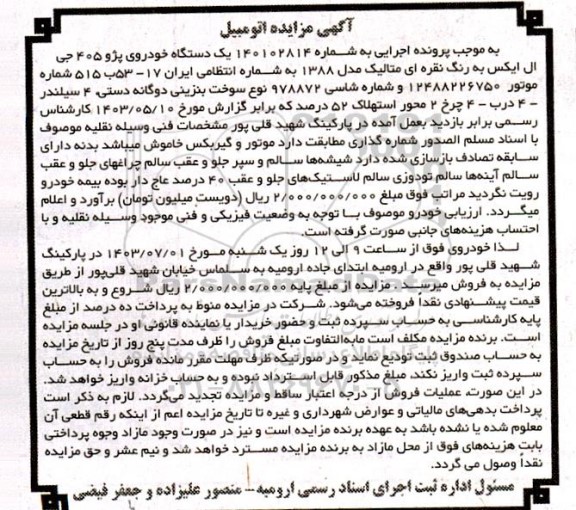 آگهی مزایده اتومبیل
به موجب پرونده اجرایی به شماره 140102814 یک دستگاه خودروی پژو 405 جی
ال ایکس به رنگ نقره ای متالیک مدل 1388 به شماره انتظامی ایران 17- 53ب 515 شماره
موتور 12488226750 و شماره شاسی 978872 نوع سوخت بنزینی دوگانه دستی، 4 سیلندر
- 4 درب - 4 چرخ 2 محور استهلاک 52 درصد که برابر گزارش مورخ 1403/05/10 کارشناس
رسمی برابر بازدید بعمل آمده در پارکینگ شهید قلی پور مشخصات فنی وسیله نقلیه موصوف
با اسناد مسلم الصدور شماره گذاری مطابقت دارد موتور و گیربکس خاموش میباشد بدنه دارای
سابقه تصادف بازسازی شده دارد شیشه‌ها سالم و سپر جلو و عقب سالم چراغهای جلو و عقب
سالم آینه‌ها سالم تودوزی سالم لاستیک‌های جلو و عقب 40 درصد عاج دار بوده بیمه خودرو
رویت نگردید مراتب فوق مبلغ 2/000/000/000 ریال (دویست میلیون تومان) برآورد و اعلام
میگردد. ارزیابی خودرو موصوف با توجه به وضعیت فیزیکی و فنی موجود وسیله نقلیه و با
احتساب هزینه‌های جانبی صورت گرفته است.
لذا خودروی فوق از ساعت 9 الی 12 روز یک شنبه مورخ 1403/07/01 در پارکینگ
شهید قلی پور واقع در ارومیه ابتدای جاده ارومیه به سلماس خیابان شهید قلی‌پور از طریق
مزایده به فروش میرسد. مزایده از مبلغ پایه 2/000/000/000 ریال شروع و به بالاترین
قیمت پیشنهادی نقدا فروخته می‌شود. شرکت در مزایده منوط به پرداخت ده درصد از مبلغ
پایه کارشناسی به حساب سپرده ثبت و حضور خریدار یا نماینده قانونی او در جلسه مزایده
است. برنده مزایده مکلف است مابه‌التفاوت مبلغ فروش را ظرف مدت پنج روز از تاریخ مزایده
به حساب صندوق ثبت تودیع نماید و در صورتیکه ظرف مهلت مقرر مانده فروش را به حساب
سپرده ثبت واریز نکند، مبلغ مذکور قابل استرداد نبوده و به حساب خزانه واریز خواهد شد.
در این صورت، عملیات فروش از درجه اعتبار ساقط و مزایده تجدید می‌گردد. لازم به ذکر است
پرداخت بدهی‌های مالیاتی و عوارض شهرداری و غیره تا تاریخ مزایده اعم از اینکه رقم قطعی آن
معلوم شده یا نشده باشد به عهده برنده مزایده است و نیز در صورت وجود مازاد وجوه پرداختی
بابت هزینه‌های فوق از محل مازاد به برنده مزایده مسترد خواهد شد و نیم عشر و حق مزایده
نقداً وصول می گردد.
مسئول اداره ثبت اجرای اسناد رسمی ارومیه- منصور علیزاده و جعفر فیضی